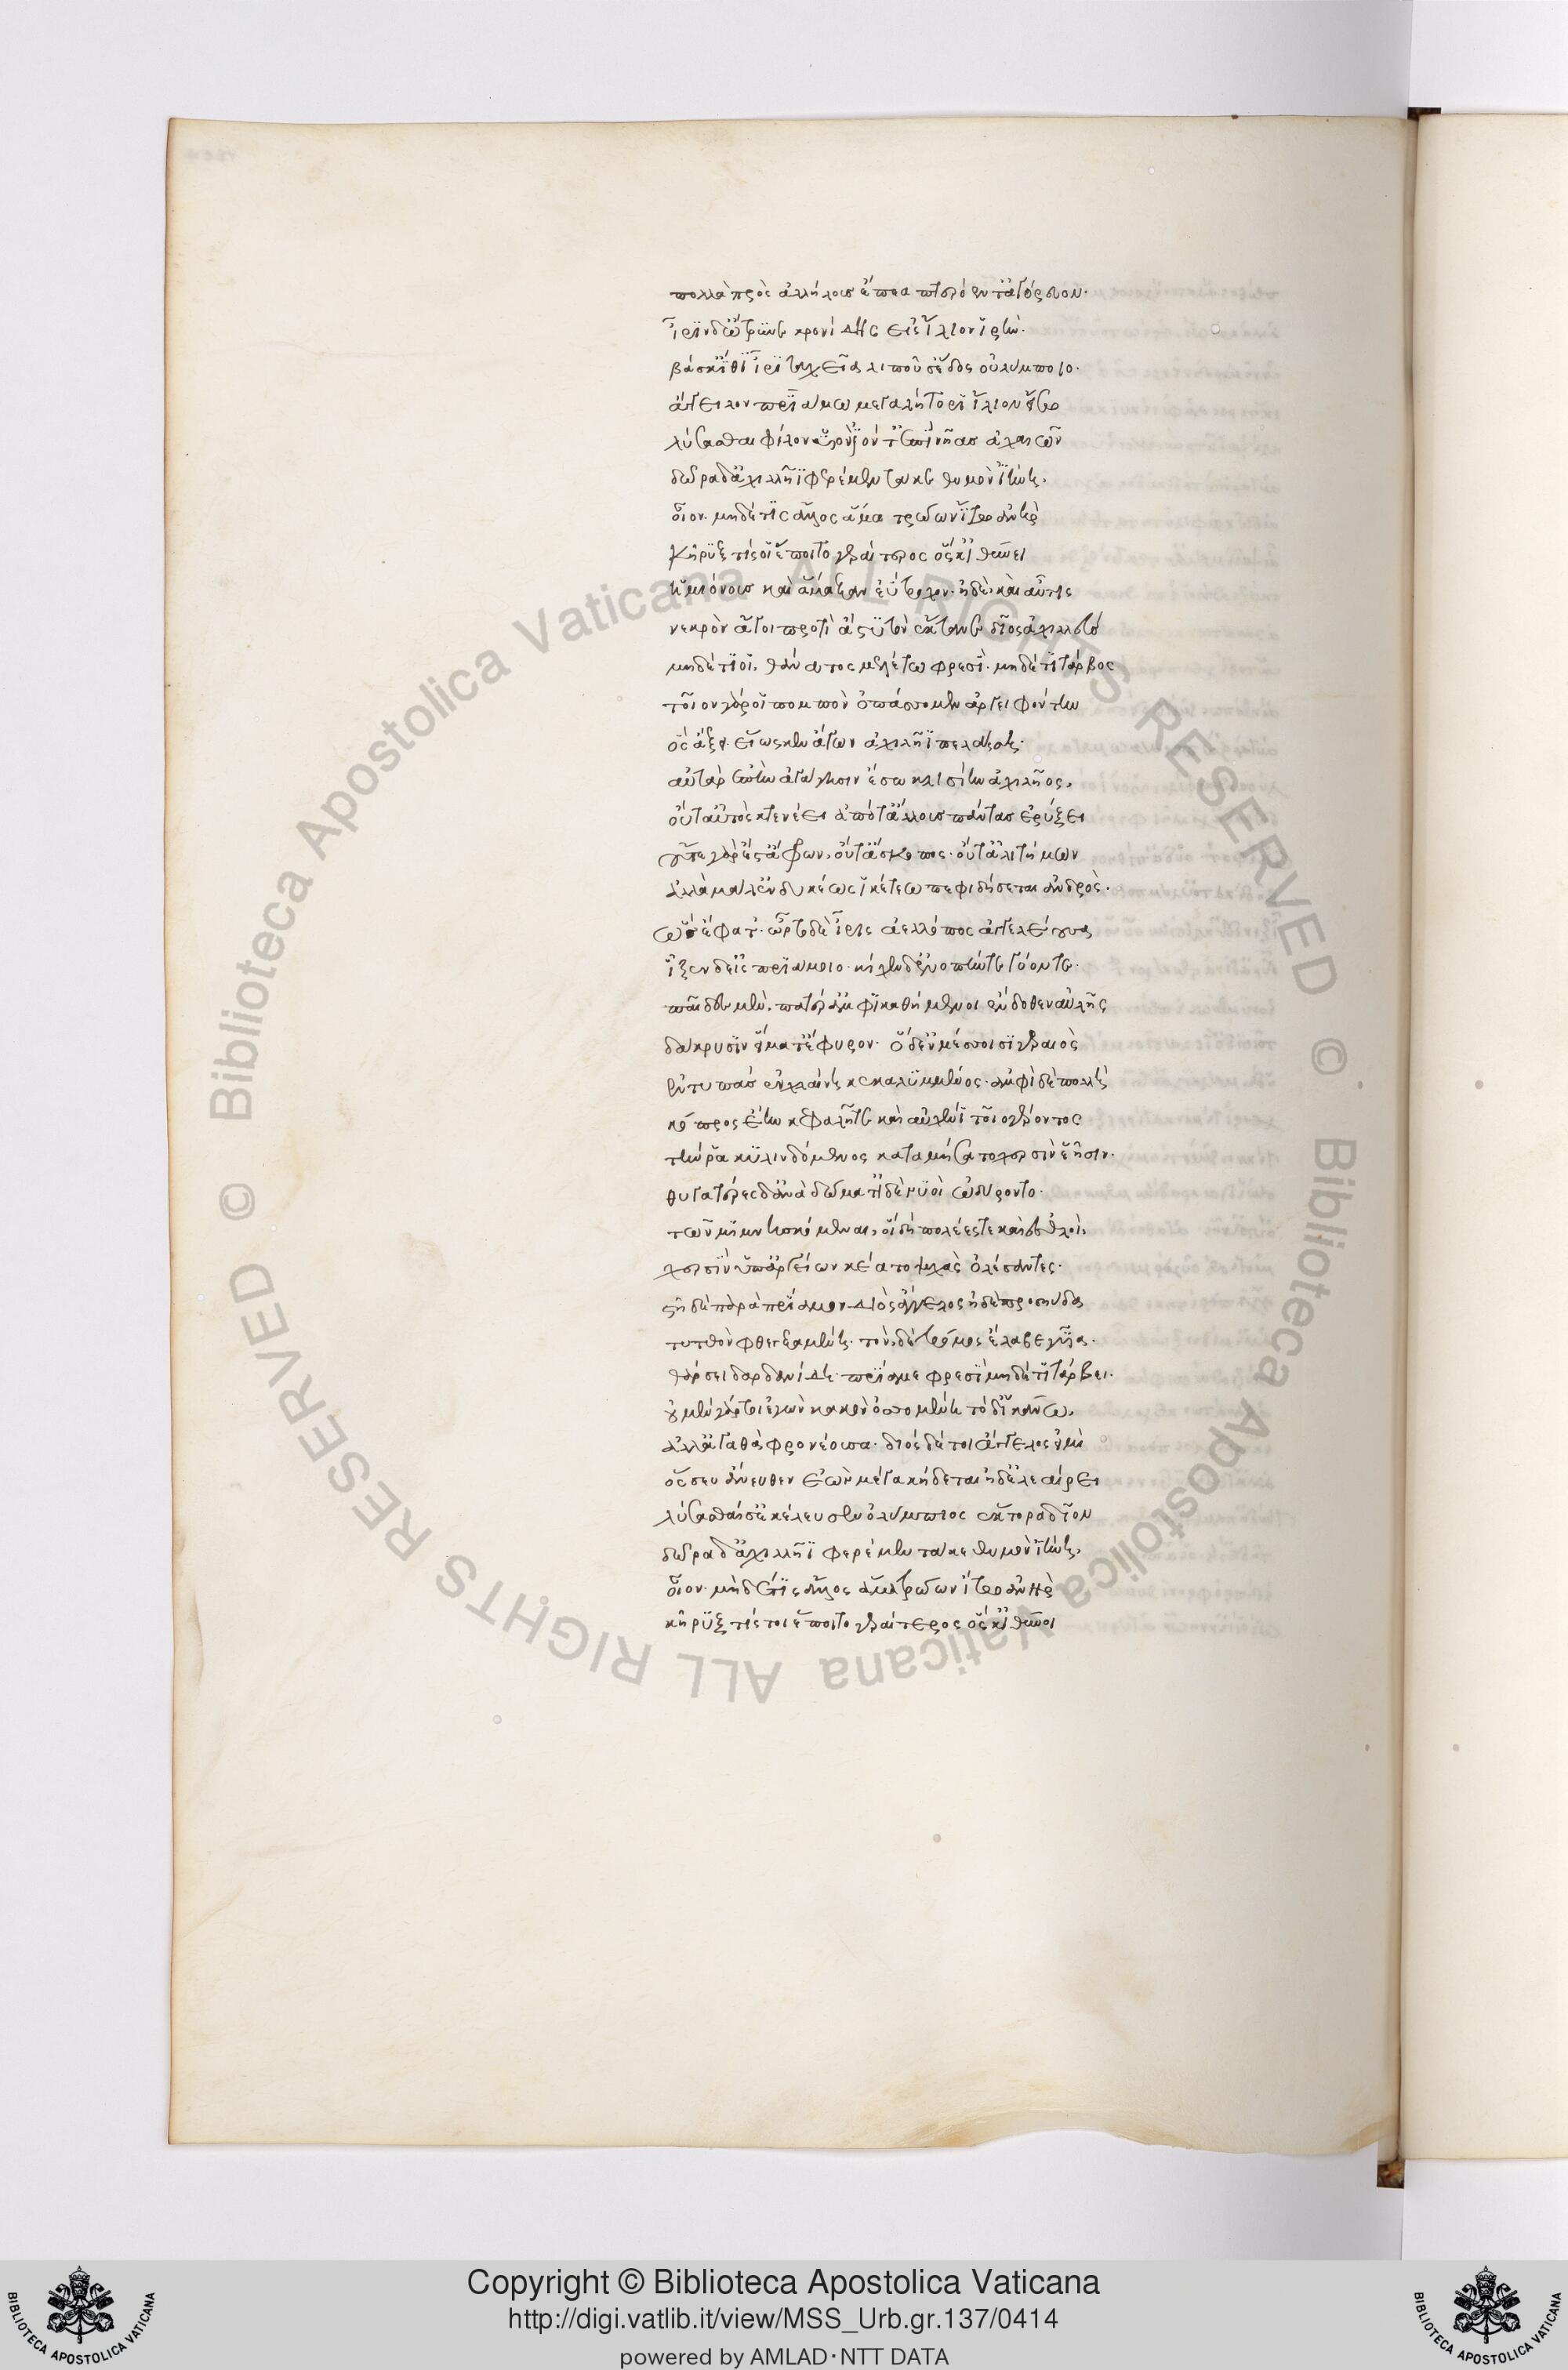 πολλὰ πρὸς ἀλλήλους ἔπεα πτερόεντ' ἀγόρευον·
ἶριν δ' ὤτρυνε κρονίδης εἰς ἴλιον ἱρήν·
βάσκ' ἴθι ἶρι ταχεῖα λιποῦσ' ἕδος οὐλύμποιο·
ἄγγειλον πριάμω μεγαλήτορι ἴλιον εἴσω
λύσασθαι φίλον υἱὸν ἰόντ' ἐπὶ νῆας ἀχαιῶν
δῶρα δ' ἀχιλλῆϊ φερέμεν τά κε θυμὸν ἰήνῃ·
οἶον· μηδέ τις ἄλλος ἅμα τρώων ἴτω ἀνὴρ
κῆρύξ τίς οἱ ἕποιτο γεραίτερος ὅς κ' ἰθύνει
ἡμιόνους καὶ ἄμαξαν ἐύτροχον· ἠδὲ καὶ αὖτις
νεκρὸν ἄγοι προτὶ ἄστυ τὸν ἔκτανε δῖος ἀχιλλεύς
μηδέ τί οἱ θάνατος μελέτω φρεσὶ· μηδέ τι τάρβος
τοῖον γάρ οἱ πομπὸν ὀπάσσομεν ἀργειφόντην
ὃς ἄξει· εἵως κεν ἄγων ἀχιλῆϊ πελάσσῃ·
αὐτὰρ ἐπὴν ἀγάγησιν ἔσω κλισίην ἀχιλῆος,
οὔτ' αὐτὸς κτενέει ἀπό τ' ἄλλους πάντας ἐρύξει
οὔτε γάρ ἐστ' ἄφρων, οὔτ' ἄσκοπος· οὔτ' ἀλιτήμων
ἀλλὰ μάλ' ἐνδυκέως ἱκέτεω πεφιδήσεται ἀνδρὸς·
ὣς ἔφατ'· ὦρτο δὲ ἶρις ἀελλόπος ἀγγελέουσα
ἷξεν δ' εἰς πριάμοιο· κίχεν δ' ἐνοπήν τε γόον τε·
παῖδες μὲν, πατέρ' ἀμφὶ καθήμενοι ἔνδοθεν αὐλῆς
δάκρυσιν εἵματ' ἔφυρον· ὃ δ' ἐν μέσσοισι γεραιὸς
ἐντυπὰς ἐν χλαίνῃ κεκαλυμμένος· ἀμφὶ δὲ πολλὴ
κόπρος ἔην κεφαλῇ τε καὶ αὐχένι τοῖο γέροντος
τήν ῥα κυλινδόμενος καταμήσατο χερσὶν ἑῇσιν·
θυγατέρες δ' ἀνὰ δώματ' ἰδὲ νυοὶ ὠδύροντο·
τῶν μιμνησκόμεναι, οἳ δὴ πολέες τε καὶ ἐσθλοὶ,
χερσὶν ὑπ' ἀργείων κέατο ψυχὰς ὀλέσαντες·
στῆ δὲ παρὰ πρίαμον διὸς ἄγγελος ἠδὲ προσηύδα
τυτθὸν φθεγξαμένη· τὸν δὲ τρόμος ἔλαβε γυῖα·
θάρσει δαρδανίδη πρίαμε φρεσὶ μηδέ τι τάρβει·
οὐ μὲν γάρ τοι ἐγὼν κακὸν ὀσσομένη τό δ' ἱκάνω,
ἀλλ' ἀγαθὰ φρονέουσα· διὸς δέ τοι ἄγγελος εἰμὶ
ὅς σευ ἄνευθεν ἐὼν μέγα κήδεται ἠδ' ἐλεαίρει
λύσασθαί σε κέλευσεν ὀλύμπιος ἕκτορα δῖον
δῶρα δ' ἀχιλλῆϊ φερέμεν τά κε θυμὸν ἰήνῃ,
οἶον· μὴδέ τις ἄλλος ἅμα τρώων ἴτω ἀνὴρ
κῆρύξ τίς τοι ἕποιτο γεραίτερος ὅς κ' ἰθύνοι
Copyright © Biblioteca Apostolica Vaticana
http://digi.vatlib.it/view/MSS_Urb.gr.137/0414
powered by AMLAD·NTT DATA
BIBLIOTECA APOSTOLICA VATICANA
BIBLIOTECA APOSTOLICA VATICANA
© Biblioteca Apostolica Vaticana ALL RIGHTS RESERVED
© Biblioteca Apostolica Vaticana ALL RIGHTS RESERVED